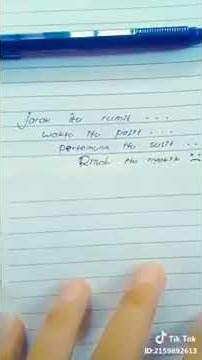 Jarak itu rumit ...
waktu itu pelit ...
pertemuan itu sulit ..
Rindu itu
Tik Tok
ID:2159892613